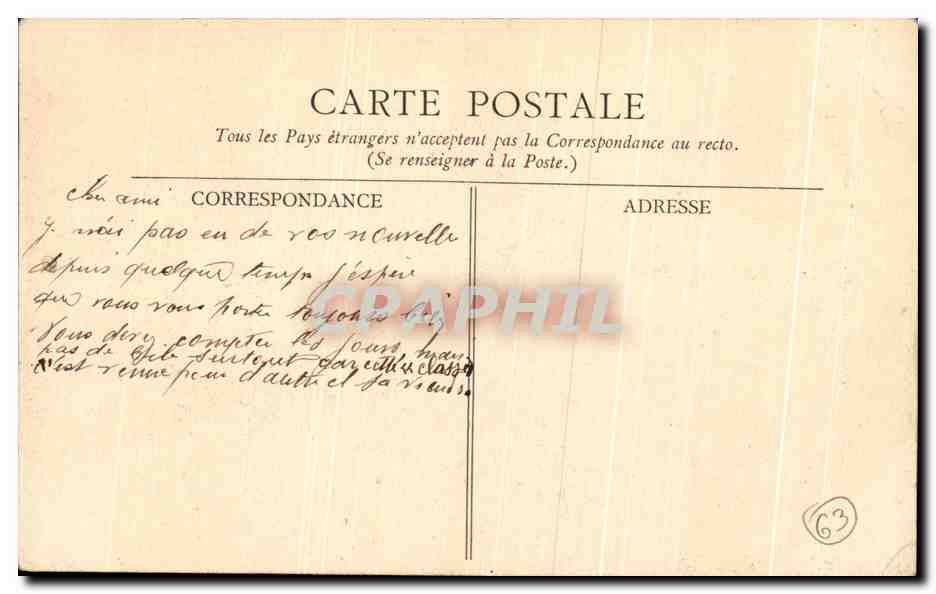 CARTE POSTALE
Tous les Pays étrangers n'acceptent pas la Correspondance au recto.
(Se renseigner à la Poste.)
CORRESPONDANCE
ADRESSE
Cher ami
J. n'ai pas eu de vos nouvelle
depuis quelque temps J'espère
que vous vous porte toujours bien
Vous devez compter les jours mais
pas de Bile surtout car cette classe
c'est venue pour d'autre et sa viendra
CPAPHIL
63